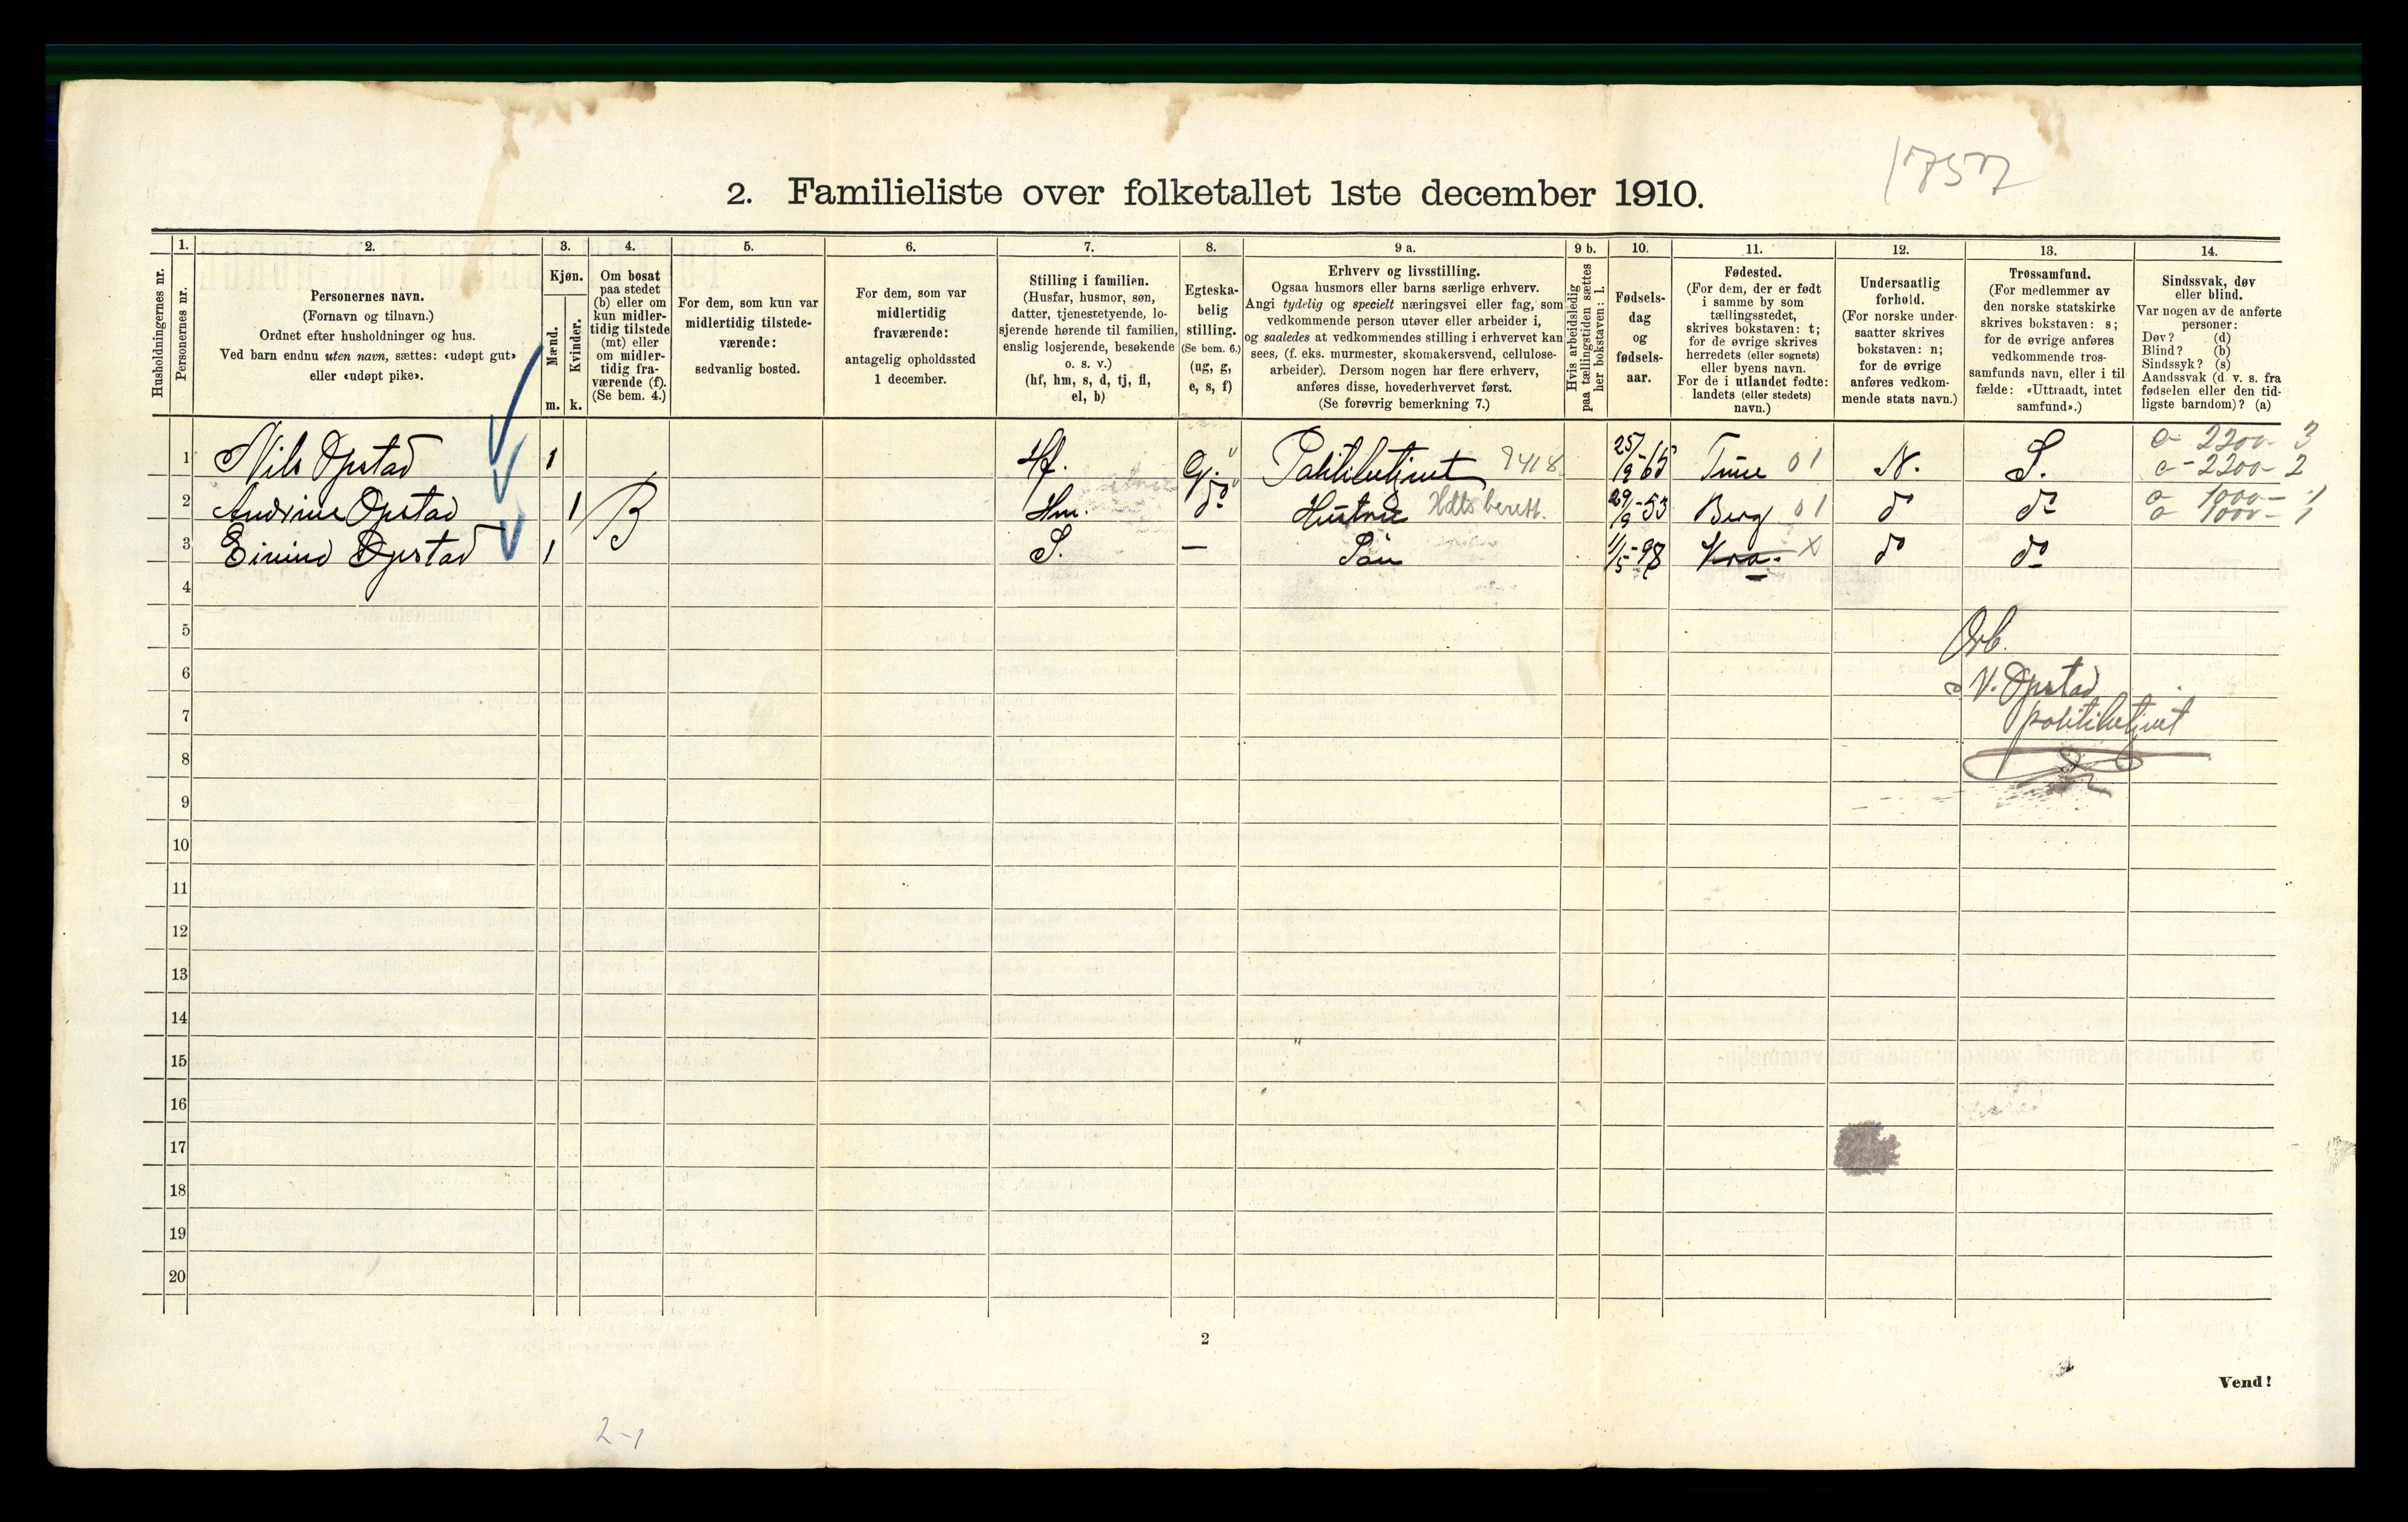 1757
2. Familieliste over folketallet 1ste december 1910.
Husholdningernes nr.
1.
Personernes nr.
2.
Personernes navn.
(Fornavn og tilnavn.)
Ordnet efter husholdninger og hus.
Ved barn endnu uten navn, sættes: «udøpt gut»
eller «udøpt pike».
3.
Kjøn.
Mænd.
Kvinder.
m. k.
4.
Om bosat
paa stedet
(b) eller om
kun midler-
tidig tilstede
(mt) eller
om midler-
tidig fra-
værende (f).
(Se bem. 4.)
5.
For dem, som kun var
midlertidig tilstede-
værende:
sedvanlig bosted.
6.
For dem, som var
midlertidig
fraværende:
antagelig opholdssted
1 december.
7.
Stilling i familien.
(Husfar, husmor, søn,
datter, tjenestetyende, lo-
sjerende hørende til familien,
enslig losjerende, besøkende
o. s. v.)
(hf, hm, s, d, tj, fl,
el, b)
8.
Egteska-
belig
stilling.
(Se bem. 6.)
(ug, g,
e, s, f)
9 a.
Erhverv og livsstilling.
Ogsaa husmors eller barns særlige erhverv.
Angi tydelig og specielt næringsvei eller fag, som
vedkommende person utøver eller arbeider i,
og saaledes at vedkommendes stilling i erhvervet kan
sees, (f. eks. murmester, skomakersvend, cellulose-
arbeider). Dersom nogen har flere erhverv,
anføres disse, hovederhvervet først.
(Se forøvrig bemerkning 7.)
9 b.
Hvis arbeidsledig
paa tællingstiden sættes
her bokstaven: l.
10.
Fødsels-
dag
og
fødsels-
aar.
11.
Fødested.
(For dem, der er født
i samme by som
tællingsstedet,
skrives bokstaven: t;
for de øvrige skrives
herredets (eller sognets)
eller byens navn.
For de i utlandet fødte:
landets (eller stedets)
navn.)
12.
Undersaatlig
forhold.
(For norske under-
saatter skrives
bokstaven: n;
for de øvrige
anføres vedkom-
mende stats navn.)
13.
Trossamfund.
(For medlemmer av
den norske statskirke
skrives bokstaven: s;
for de øvrige anføres
vedkommende tros-
samfunds navn, eller i til-
fælde: «Uttraadt, intet
samfund».)
14.
Sindssvak, døv
eller blind.
Var nogen av de anførte
personer:
Døv? (d)
Blind? (b)
Sindssyk? (s)
Aandssvak (d. v. s. fra
fødselen eller den tid-
ligste barndom)? (a)
1 Nils Opstad 1 Hf. G. Politibetjent 7418 25/9-65 Tune 01 N. S. e- 2200- 3
c- 2200- 2
2 Andrine Opstad 1 B Hm. do Hustrue Hdts berett. 29/9-53 Berg 01 do do a 1000- 1
a 1000- 1
3 Eivind Opstad 1 S. — Søn 11/5-98 Kra. x do do
4
5
6
7
8
9
10
11
12
13
14
15
16
17
18
19
20
Orb.
N. Opstad
politibetjent
2
Vend!
2-1